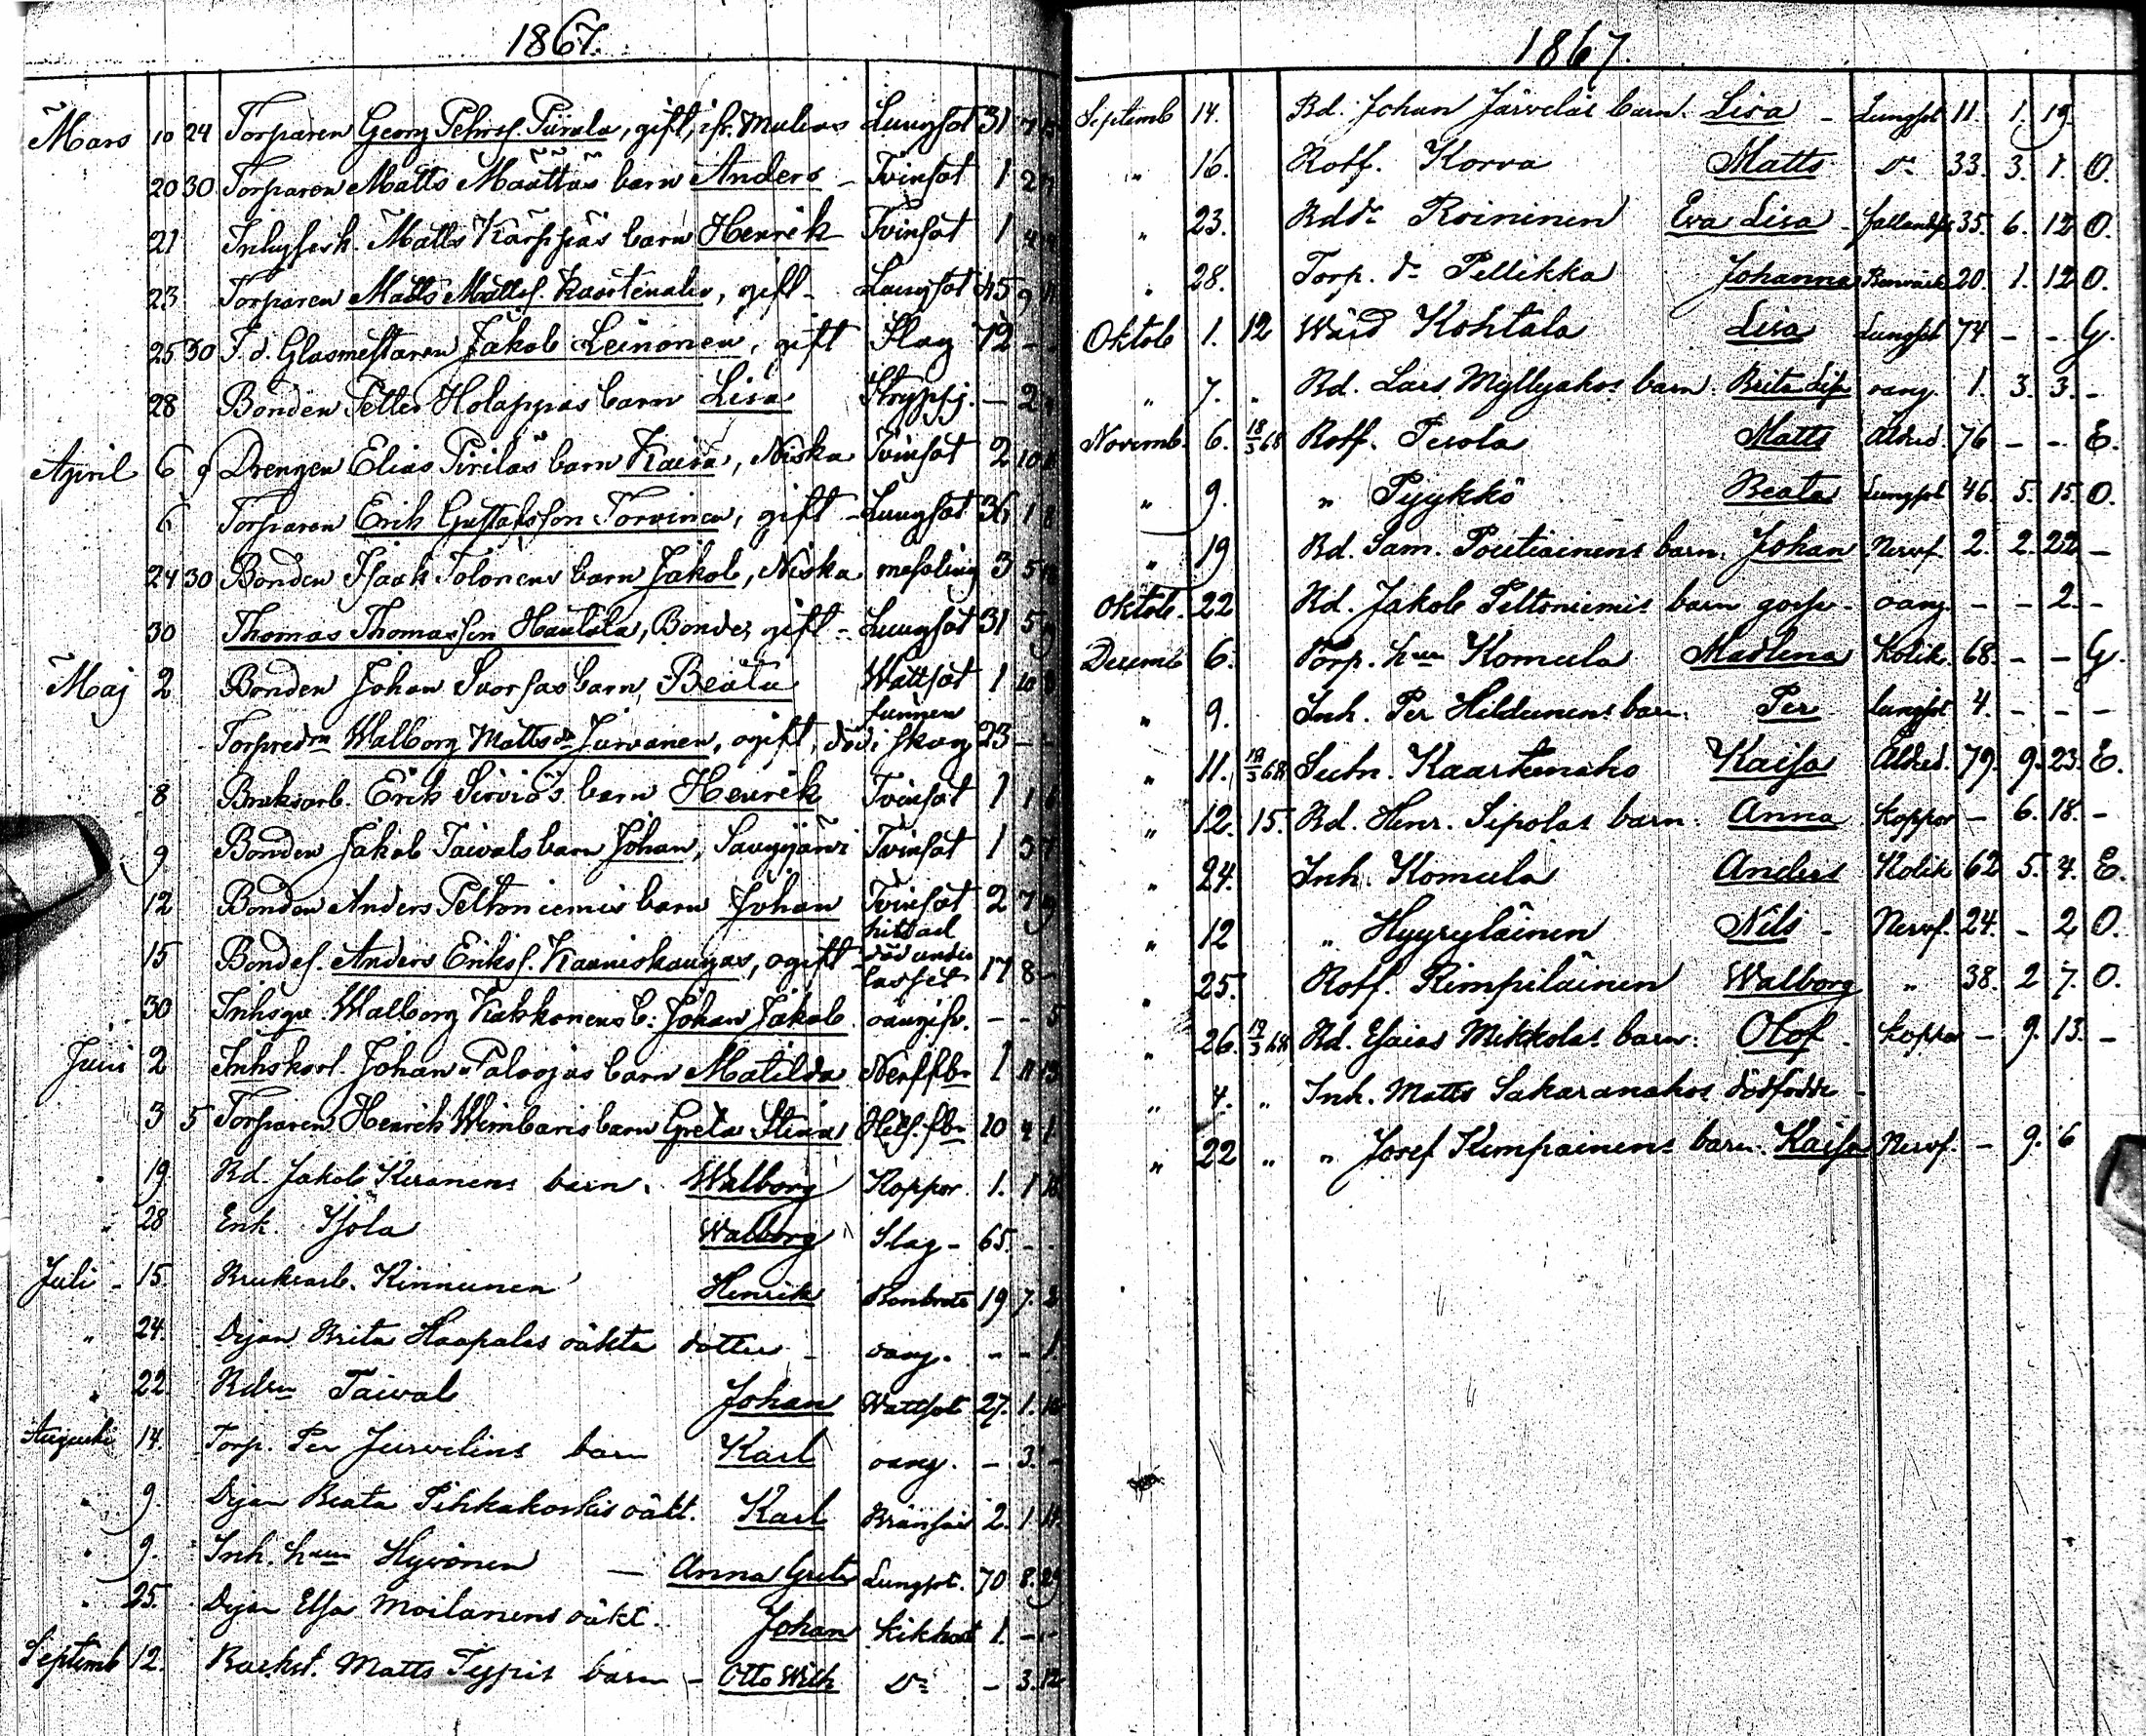 1867.
Mars 10 24 Torparen Georg Pehrss. Piirala, gift, ifr. Muhos Lungsot 31 7
20 30 Torparen Matts Määttäs barn Anders - Tvinsot 1 2
21 Inhysesk. Matts Kärppäs barn Henrik Tvinsot 1 4
23 Torparen Matts Mattss. Kaartenaho, gift - Lungsot 45 9
25 30 F. d. Glasmestaren Jakob Leinonen, gift Slag 72 - -
28 Bonden Petter Holappas barn Lisa Strypsj. - 2
April 6 9 Drengen Elias Pirilas barn Kaisa, Niska Tvinsot 2 10
6 Torparen Erik Gustafsson Torvinen, gift - Lungsot 36 1 8
24 30 Bonden Isaak Tolonens barn Jakob, Niska messling 3 5
30 Thomas Thomasson Hautala, Bonde, gift - Lungsot 31 5 9
Maj 2 Bonden Johan Suorsas barn Beata Wattsot 1 10 8
Torpredrn Walborg Mattsdr Jurvanen, ogift, funnen död i skog 23 - -
8 Bruksarb. Erik Sirviös barn Henrik Tvinsot 1 1 6
9 Bonden Jakob Taivals barn Johan, Sanginjärvi Tvinsot 1 3 7
12 Bonden Anders Peltoniemis barn Johan Tvinsot 2 7 9
15 Bondes. Anders Erikss. Kauniskangas, ogift - hittad död under lasset 17 8 -
30 Inhsqv. Walborg Kakkonens b. Johan Jakob oangifv. - - 5
Juni 2 Inhskarl. Johan Palojas barn Matilda Nerffbr 1 11 13
3 5 Torparen Henrik Wimbaris barn Greta Stina Hets. fbr 10 4 1
" 19. Bd. Jakob Keränens barn. Walborg Koppor. 1. 1
" 28 Enk. Isola Walborg Slag - 65. - -
Juli - 15. Bruksarb. Kinnunen Henrik Benbrott 19 7. 2
" 24. Pigan Brita Haapalas oäkta dotter - oang. - - 1.
" 22. Bden Taival Johan Wattsot 27. 1.
Augusti 14. Torp. Per Jurvelins barn Karl oang. - 3. -
" 9. Pigan Beata Pihkakoskis oäkt. Karl 2. 1
" 9. Inh. hun Hyvönen — Anna Greta Lungsot. 70 8. 29
" 25. Pigan Elsa Moilanens oäkt. Johan Kikhost 1. - -
Septemb 12. Backst. Matts Typpis barn - Otto Wilh Do - 3. 12
1867.
Septemb 14. Bd. Johan Järveläs barn. Lisa - Lungsot 11. 1. 19.
" 16. Rotf. Korva Matts Do 33. 3. 1. O.
" 23. Bddr Roininen Eva Lisa - fallandesj. 35. 6. 12 O.
" 28. Torp. dr Pellikka Johanna 20. 1. 12 O.
Oktob 1. 12 Wärd Kohtala Lisa Lungsot 74 - - G.
" 7. " Bd. Lars Myllyahos barn. Brita Lisa oang. 1. 3. 3. -
Novemb. 6. 18/3 68 Rotf. Tesola Matts Åldrd. 76 - - E.
" 9. " Pyykkö Beata Lungsot 46. 5. 15. O.
" 19 Bd. Sam. Poutiainens barn. Johan Nervf. 2. 2. 22 -
Oktob. 22 Bd. Jakob Peltoniemis barn gosse - oang. - - 2. -
Decemb 6. Torp. hun Komula Madlena Kolik. 68. - - G.
" 9. Inh. Per Hildunens barn. Per lungsot 4. - - -
" 11. 19/3 68 Sutn. Kaartenaho Kaisa Åldrd. 79. 9. 23. E.
" 12. 15. Bd. Henr. Sipolas barn. Anna Koppor - 6. 18. -
" 24. Inh. Komula Anders Kolik 62 5. 4. E.
" 12 " Hyyryläinen Nils - Nervf. 24. - 2 O.
" 25. Rotf. Rimpiläinen Walborg " 38. 2 7. O.
" 26. 19/3 68 Bd. Esaias Mikkolas barn. Olof - koppor - 9. 13. -
" 4. " Inh. Matts Sakaranahos dödfödde -
" 22 " " Josef Kemppainens barn. Kaisa Nervf. - 9. 6